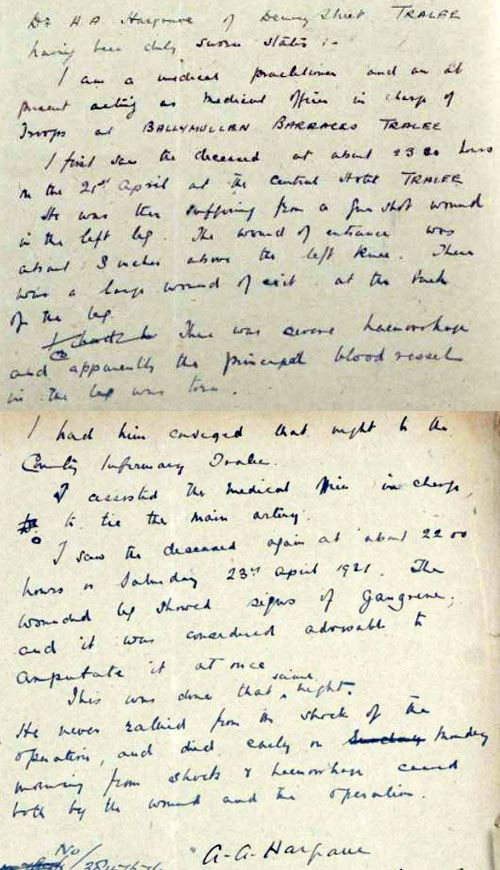 Dr H.A. Hargrave of Denny Street TRALEE
having been duly sworn states :-
I am a medical practitioner and am at
present acting as Medical Officer in charge of
Troops at BALLYMULLEN BARRACKS TRALEE
I first saw the deceased at about 2300 hours
on the 21st April at the Central Hotel TRALEE
He was then suffering from a gun shot wound
in the left leg. The wound of entrance was
about 3 inches above the left knee. There
was a large wound of exit at the back
of the leg.
There was severe haemorrhage
and apparently the principal blood vessel
in the leg was torn.
I had him conveyed that night to the
County Infirmary Tralee.
I assisted the medical in charge,
to tie the main artery.
I saw the deceased again at about 2200
hours on Saturday 23rd April 1921. The
wounded leg showed signs of Gangrene,
and it was considered advisable to
amputate it at once
This was done that same night.
He never rallied from the shock of the
operation, and died early on Sunday Monday
morning from shock & haemorrhage caused
both by the wound and the operation.
A-A-Hargrave
No